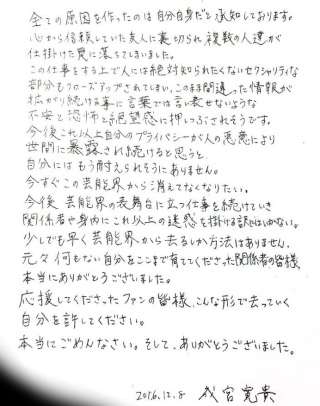 全ての原因を作ったのは自分自身だと承知しております。
心から信頼していた友人に裏切られ複数の人達が
仕掛けた罠に落ちてしまいました。
この仕事をする上で人には絶対知られたくないセクシャリティな
部分もクローズアップされてしまい、このまま間違った情報が
拡がり続ける事に言葉では言い表せないような
不安と恐怖と絶望感に押しつぶされそうです。
今後これ以上自分のプライバシーが人の悪意により
世間に暴露され続けると思うと、
自分にはもう耐えられそうにありません。
今すぐこの芸能界から消えてなくなりたい。
今後芸能界の表舞台に立つ仕事を続けていき
関係者や身内にこれ以上の迷惑を掛ける訳にはいかない。
少しでも早く芸能界から去るしか方法はありません。
元々何もない自分をここまで育ててくださった関係者の皆様、
本当にありがとうございました。
応援してくださったファンの皆様、こんな形で去っていく
自分を許してください。
本当にごめんなさい。そして、ありがとうございました。
2016.12.8 成宮寛貴